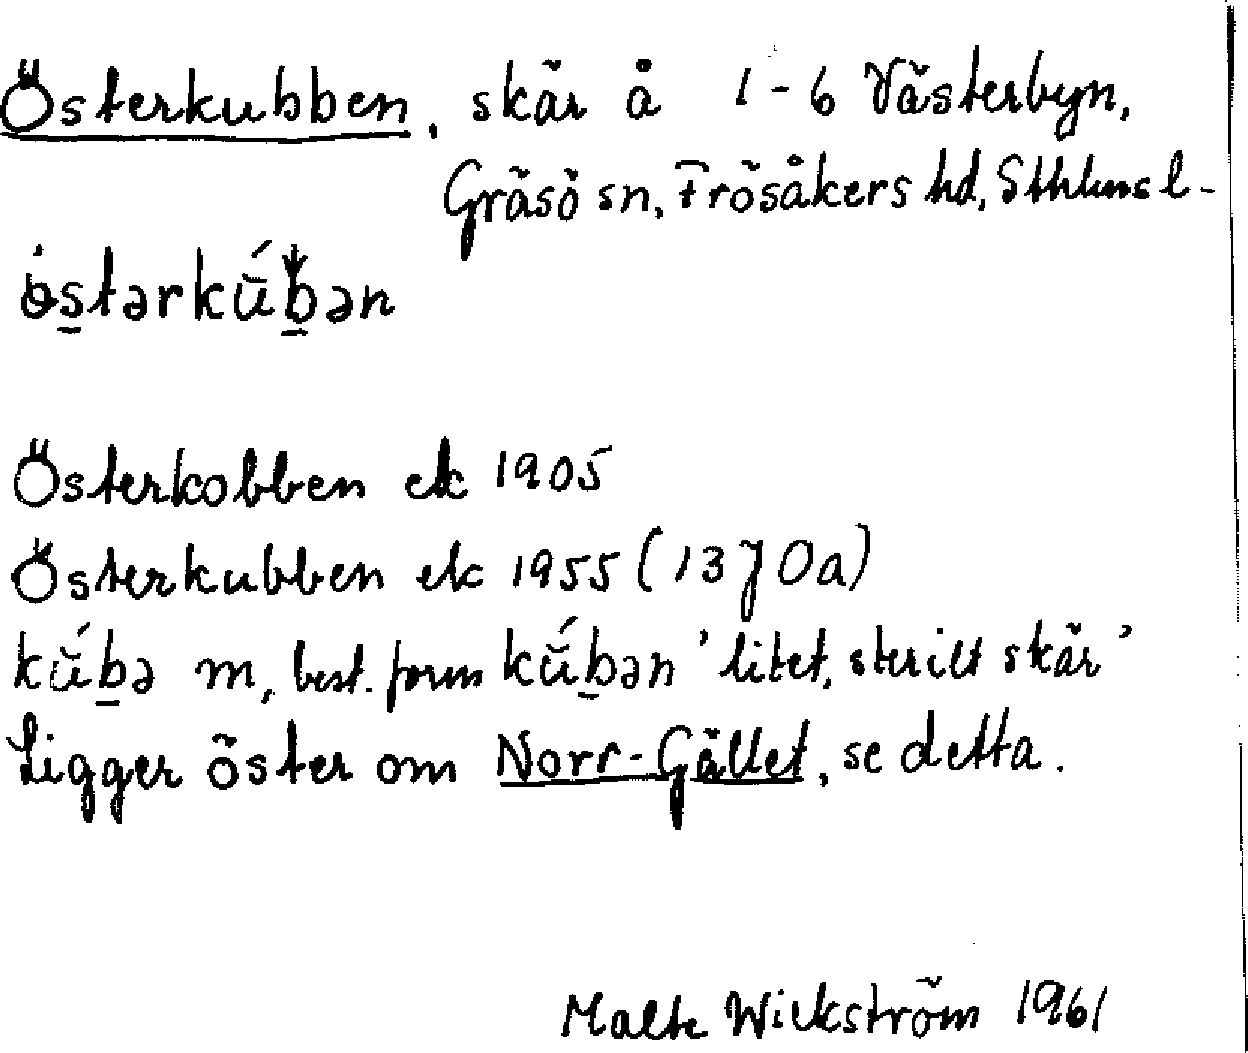 Österkubben, skär å 1-6 Västerbyn,
Gräsö sn, Frösåkers hd, Sthlms l-
östərkúbən
Österkobben ek 1905
Österkubben ek 1955 (13 J 0a)
kúbə m, best. form kúbən 'litet, sterilt skär'
Ligger öster om Norr-Gället, se detta.
Malte Wickström 1961